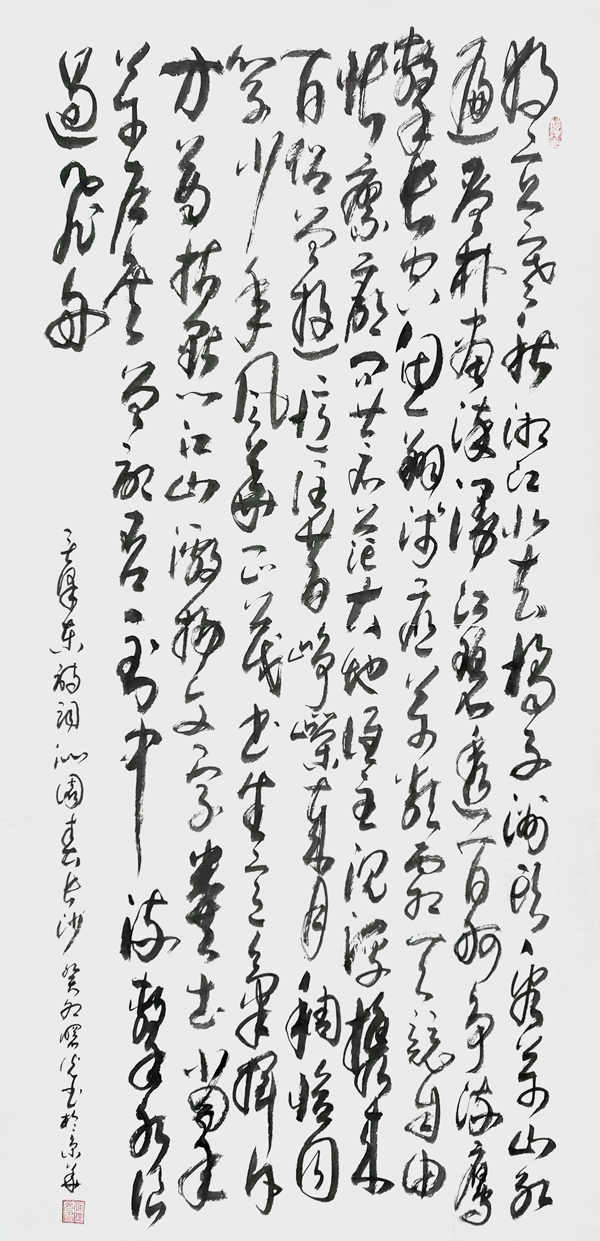 独立寒秋湘江北去橘子洲头看万山红
遍层林尽染漫江碧透百舸争流鹰
擊长空鱼翔浅底万类霜天竞自由
怅寥廓问苍茫大地谁主沉浮携来
百侣曾游忆往昔峥嵘岁月稠恰同
学少年风华正茂书生意气挥斥
方遒指点江山激扬文字粪土当年
万户侯曾记否到中流擊水浪
遏飞舟
毛泽东诗词沁园春长沙 癸卯曙光书於京华